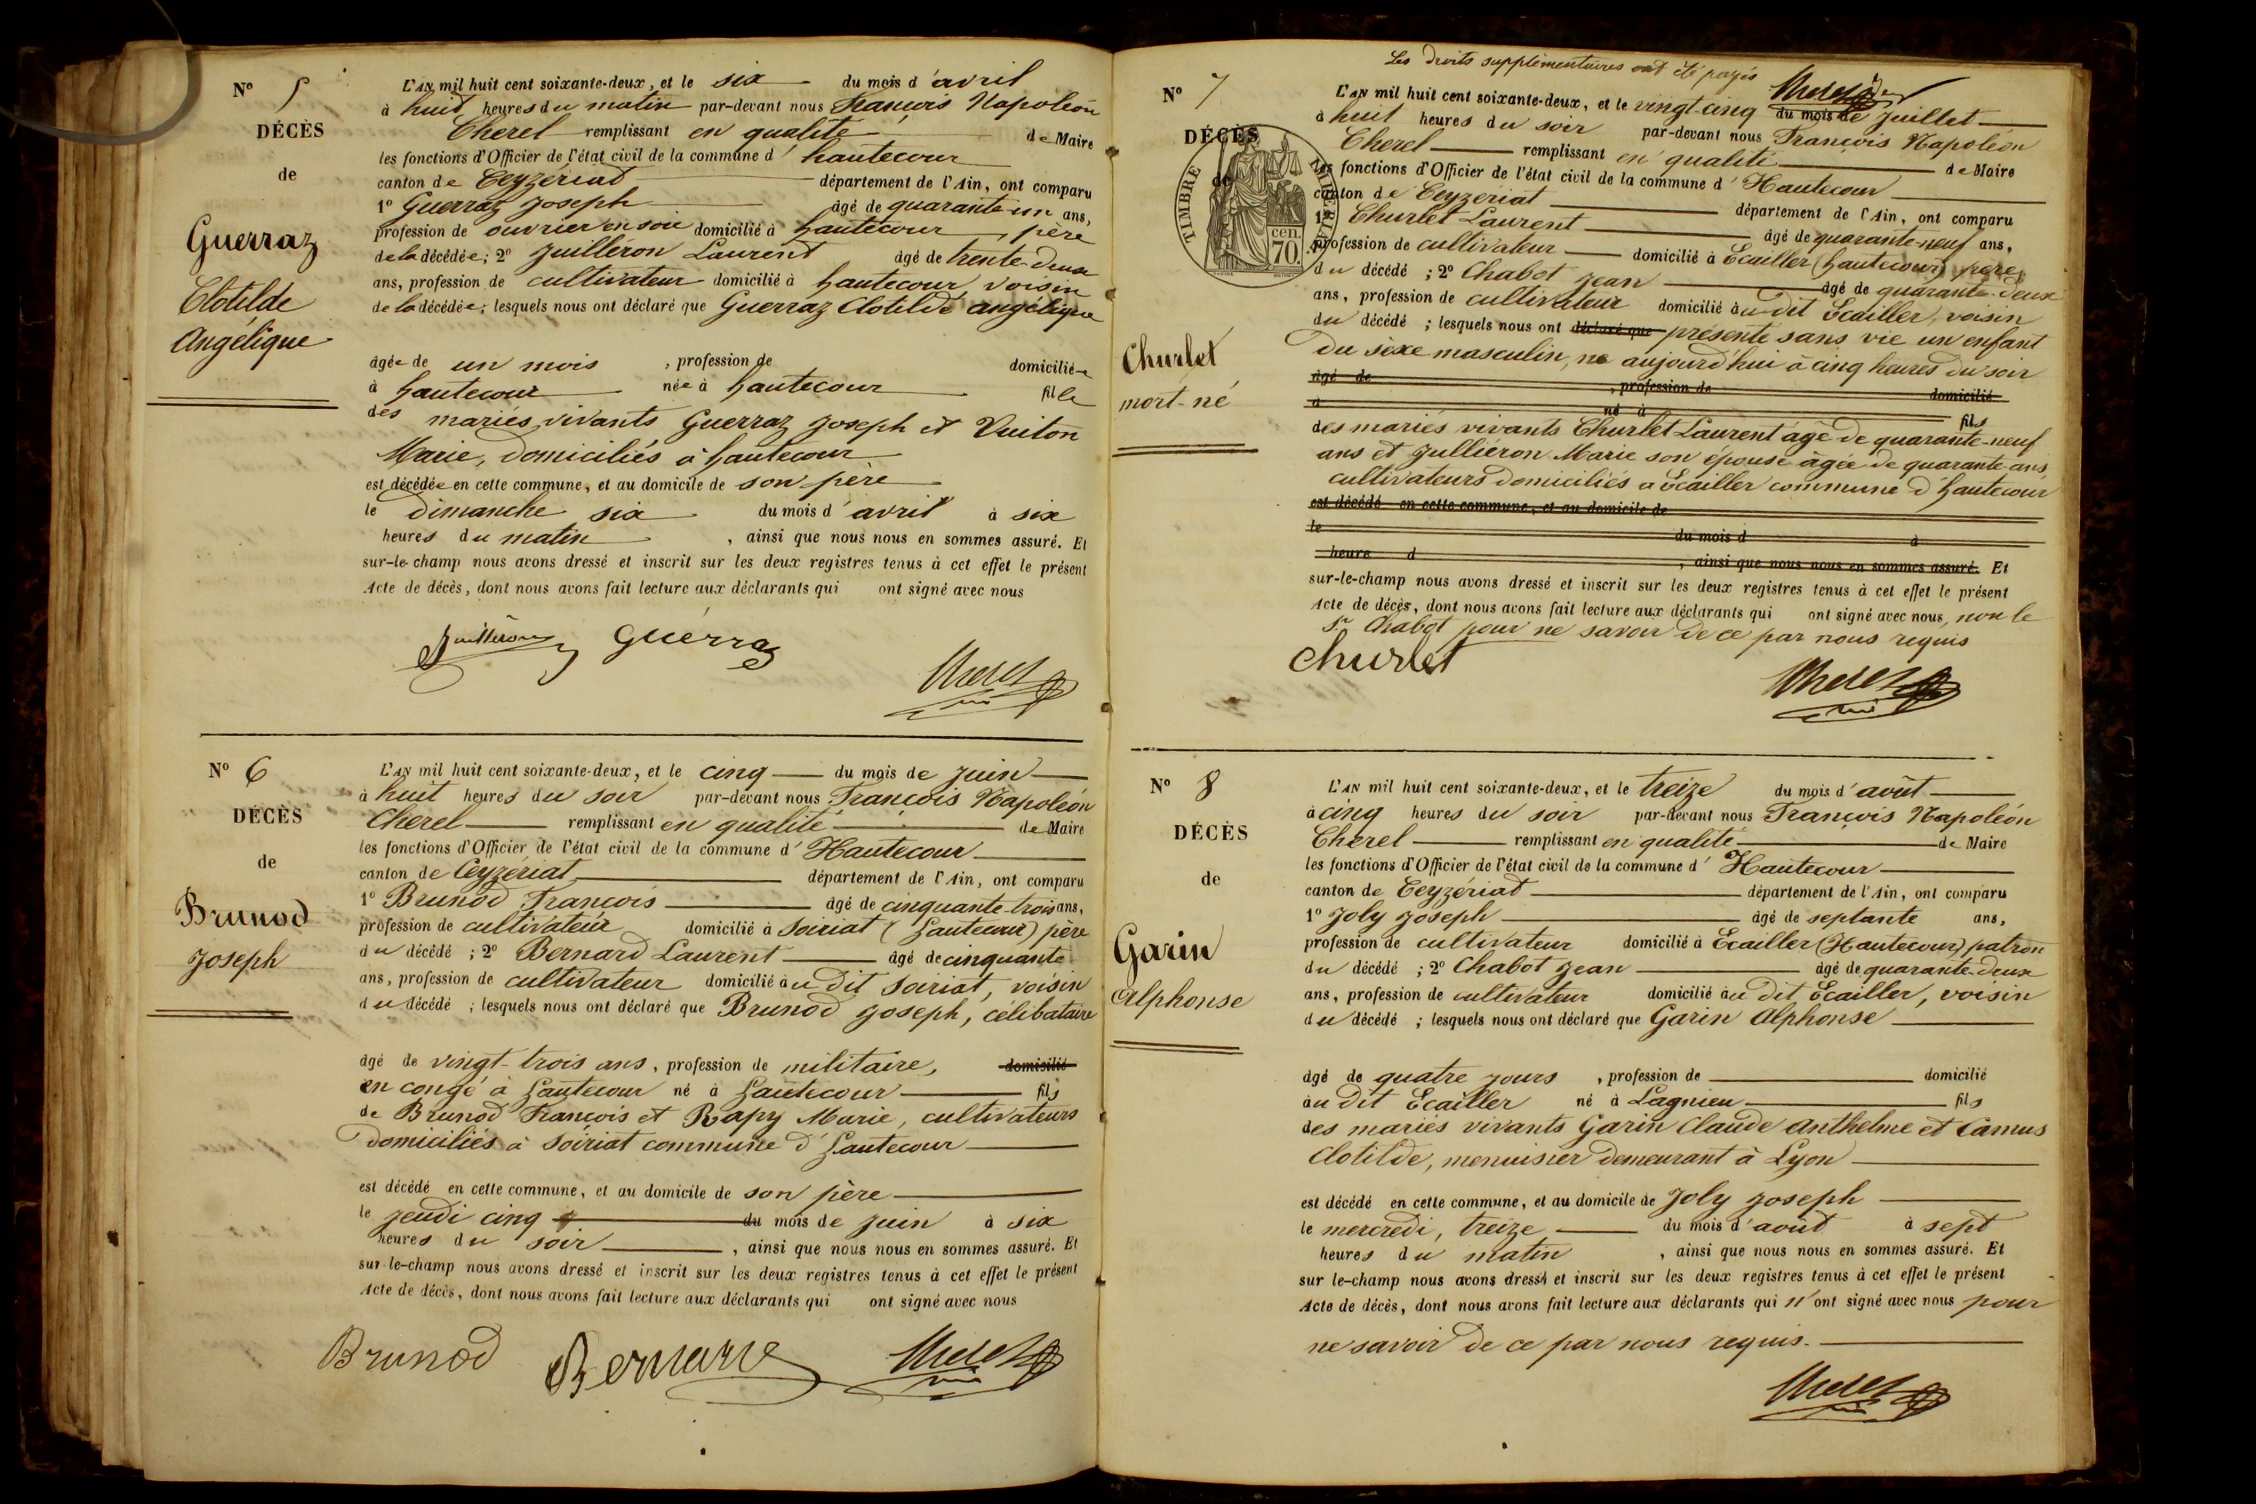 N° 5
DÉCÈS
de
Guerraz
Clotilde
Angélique
L'AN mil huit cent soixante-deux, et le six du mois d'avril
à huit heures du matin par-devant nous François Napoléon
Cherel remplissant en qualité de Maire
les fonctions d'Officier de l'état civil de la commune d'hautecour
canton de Ceyzériat département de l'Ain, ont comparu
1° Guerraz Joseph âgé de quarante-un ans,
profession de ouvrier en soie domicilié à hautecour, père
de la décédée; 2° Juilleron Laurent âgé de trente-deux
ans, profession de cultivateur domicilié à hautecour, voisin
de la décédée; lesquels nous ont déclaré que Guerraz Clotilde angélique
âgée de un mois, profession de domiciliée
à hautecour née à hautecour fille
des mariés vivants Guerraz Joseph et Vuiton
Marie, domiciliés à hautecour
est décédée en cette commune, et au domicile de son père
le dimanche six du mois d'avril à six
heures du matin, ainsi que nous nous en sommes assuré. Et
sur-le-champ nous avons dressé et inscrit sur les deux registres tenus à cet effet le présent
Acte de décès, dont nous avons fait lecture aux déclarants qui ont signé avec nous
Juilleron Guerraz
Cherel
N° 6
DÉCÈS
de
Brunod
Joseph
L'AN mil huit cent soixante-deux, et le cinq du mois de juin
à huit heures du soir par-devant nous François Napoléon
Cherel remplissant en qualité de Maire
les fonctions d'Officier de l'état civil de la commune d'Hautecour
canton de Ceyzériat département de l'Ain, ont comparu
1° Brunod François âgé de cinquante-trois ans,
profession de cultivateur domicilié à Soiriat (hautecour) père
du décédé; 2° Bernard Laurent âgé de cinquante
ans, profession de cultivateur domicilié au dit Soiriat, voisin
du décédé; lesquels nous ont déclaré que Brunod Joseph, célibataire
âgé de vingt-trois ans, profession de militaire, domicilié
en congé à hautecour né à hautecour fils
de Brunod François et Rapy Marie, cultivateurs
domiciliés à Soiriat commune d'hautecour
est décédé en cette commune, et au domicile de son père
le jeudi cinq du mois de juin à six
heures du soir, ainsi que nous nous en sommes assuré. Et
sur-le-champ nous avons dressé et inscrit sur les deux registres tenus à cet effet le présent
Acte de décès, dont nous avons fait lecture aux déclarants qui ont signé avec nous
Brunod Bernard Cherel
Les droits supplémentaires ont été payés
Cherel
N° 7
DÉCÈS
de
TIMBRE IMPÉRIAL
70 cen.
Churlet
mort-né
L'AN mil huit cent soixante-deux, et le vingt-cinq du mois de juillet
à huit heures du soir par-devant nous François Napoléon
Cherel remplissant en qualité de Maire
les fonctions d'Officier de l'état civil de la commune d'Hautecour
canton de Ceyzériat département de l'Ain, ont comparu
1° Churlet Laurent âgé de quarante-neuf ans,
profession de cultivateur domicilié à Ecailler (hautecour) père
du décédé; 2° Chabot Jean âgé de quarante-deux
ans, profession de cultivateur domicilié au dit Ecailler, voisin
du décédé; lesquels nous ont déclaré que présenté sans vie un enfant
du sexe masculin, né aujourd'hui à cinq heures du soir
âgé de, profession de domicilié
à né à fils
des mariés vivants Churlet Laurent âgé de quarante-neuf
ans et Julliéron Marie son épouse âgée de quarante ans
cultivateurs domiciliés à Ecailler commune d'hautecour
est décédé en cette commune, et au domicile de
le du mois d à
heure d, ainsi que nous nous en sommes assuré. Et
sur-le-champ nous avons dressé et inscrit sur les deux registres tenus à cet effet le présent
Acte de décès, dont nous avons fait lecture aux déclarants qui ont signé avec nous, non le
Sr Chabot pour ne savoir de ce par nous requis
Churlet
Cherel
N° 8
DÉCÈS
de
Garin
Alphonse
L'AN mil huit cent soixante-deux, et le treize du mois d'août
à cinq heures du soir par-devant nous François Napoléon
Cherel remplissant en qualité de Maire
les fonctions d'Officier de l'état civil de la commune d'Hautecour
canton de Ceyzériat département de l'Ain, ont comparu
1° Joly Joseph âgé de septante ans,
profession de cultivateur domicilié à Ecailler (Hautecour) patron
du décédé; 2° Chabot Jean âgé de quarante-deux
ans, profession de cultivateur domicilié au dit Ecailler, voisin
du décédé; lesquels nous ont déclaré que Garin Alphonse
âgé de quatre jours, profession de domicilié
au dit Ecailler né à Lagnieu fils
des mariés vivants Garin Claude Anthelme et Camus
Clotilde, menuisier demeurant à Lyon
est décédé en cette commune, et au domicile de Joly Joseph
le mercredi, treize du mois d'août à sept
heures du matin, ainsi que nous nous en sommes assuré. Et
sur le-champ nous avons dressé et inscrit sur les deux registres tenus à cet effet le présent
Acte de décès, dont nous avons fait lecture aux déclarants qui n'ont signé avec nous pour
ne savoir de ce par nous requis.
Cherel